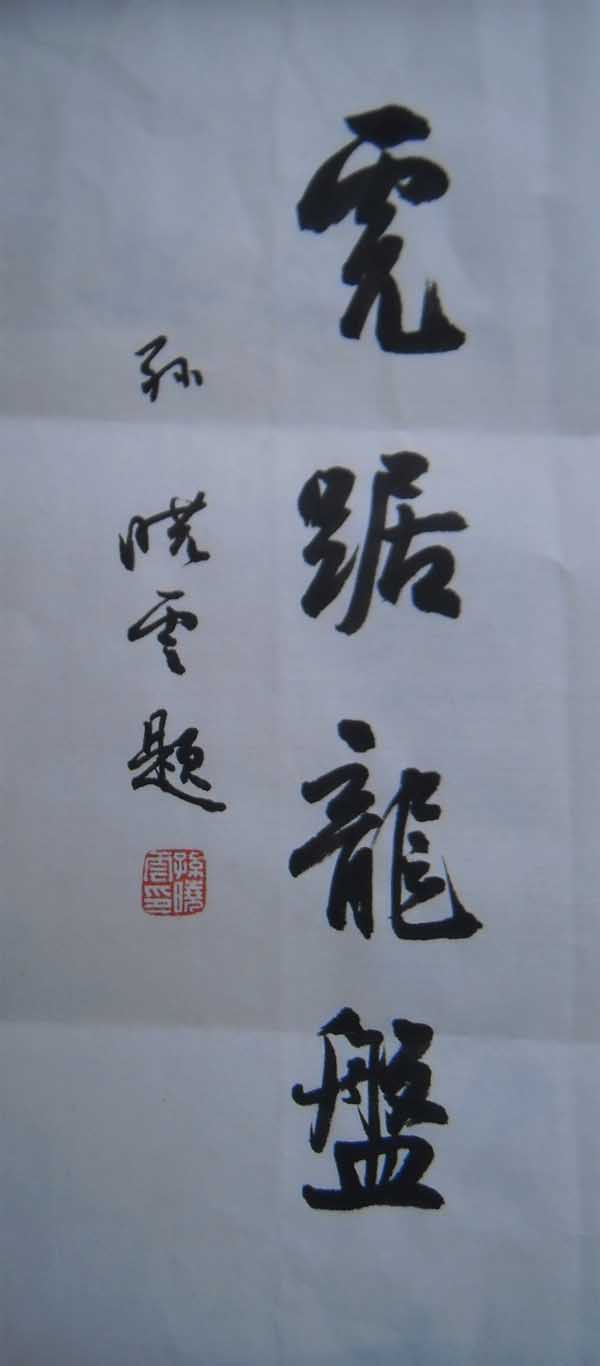 虎踞龍盤
孫曉雲題
孫曉雲印